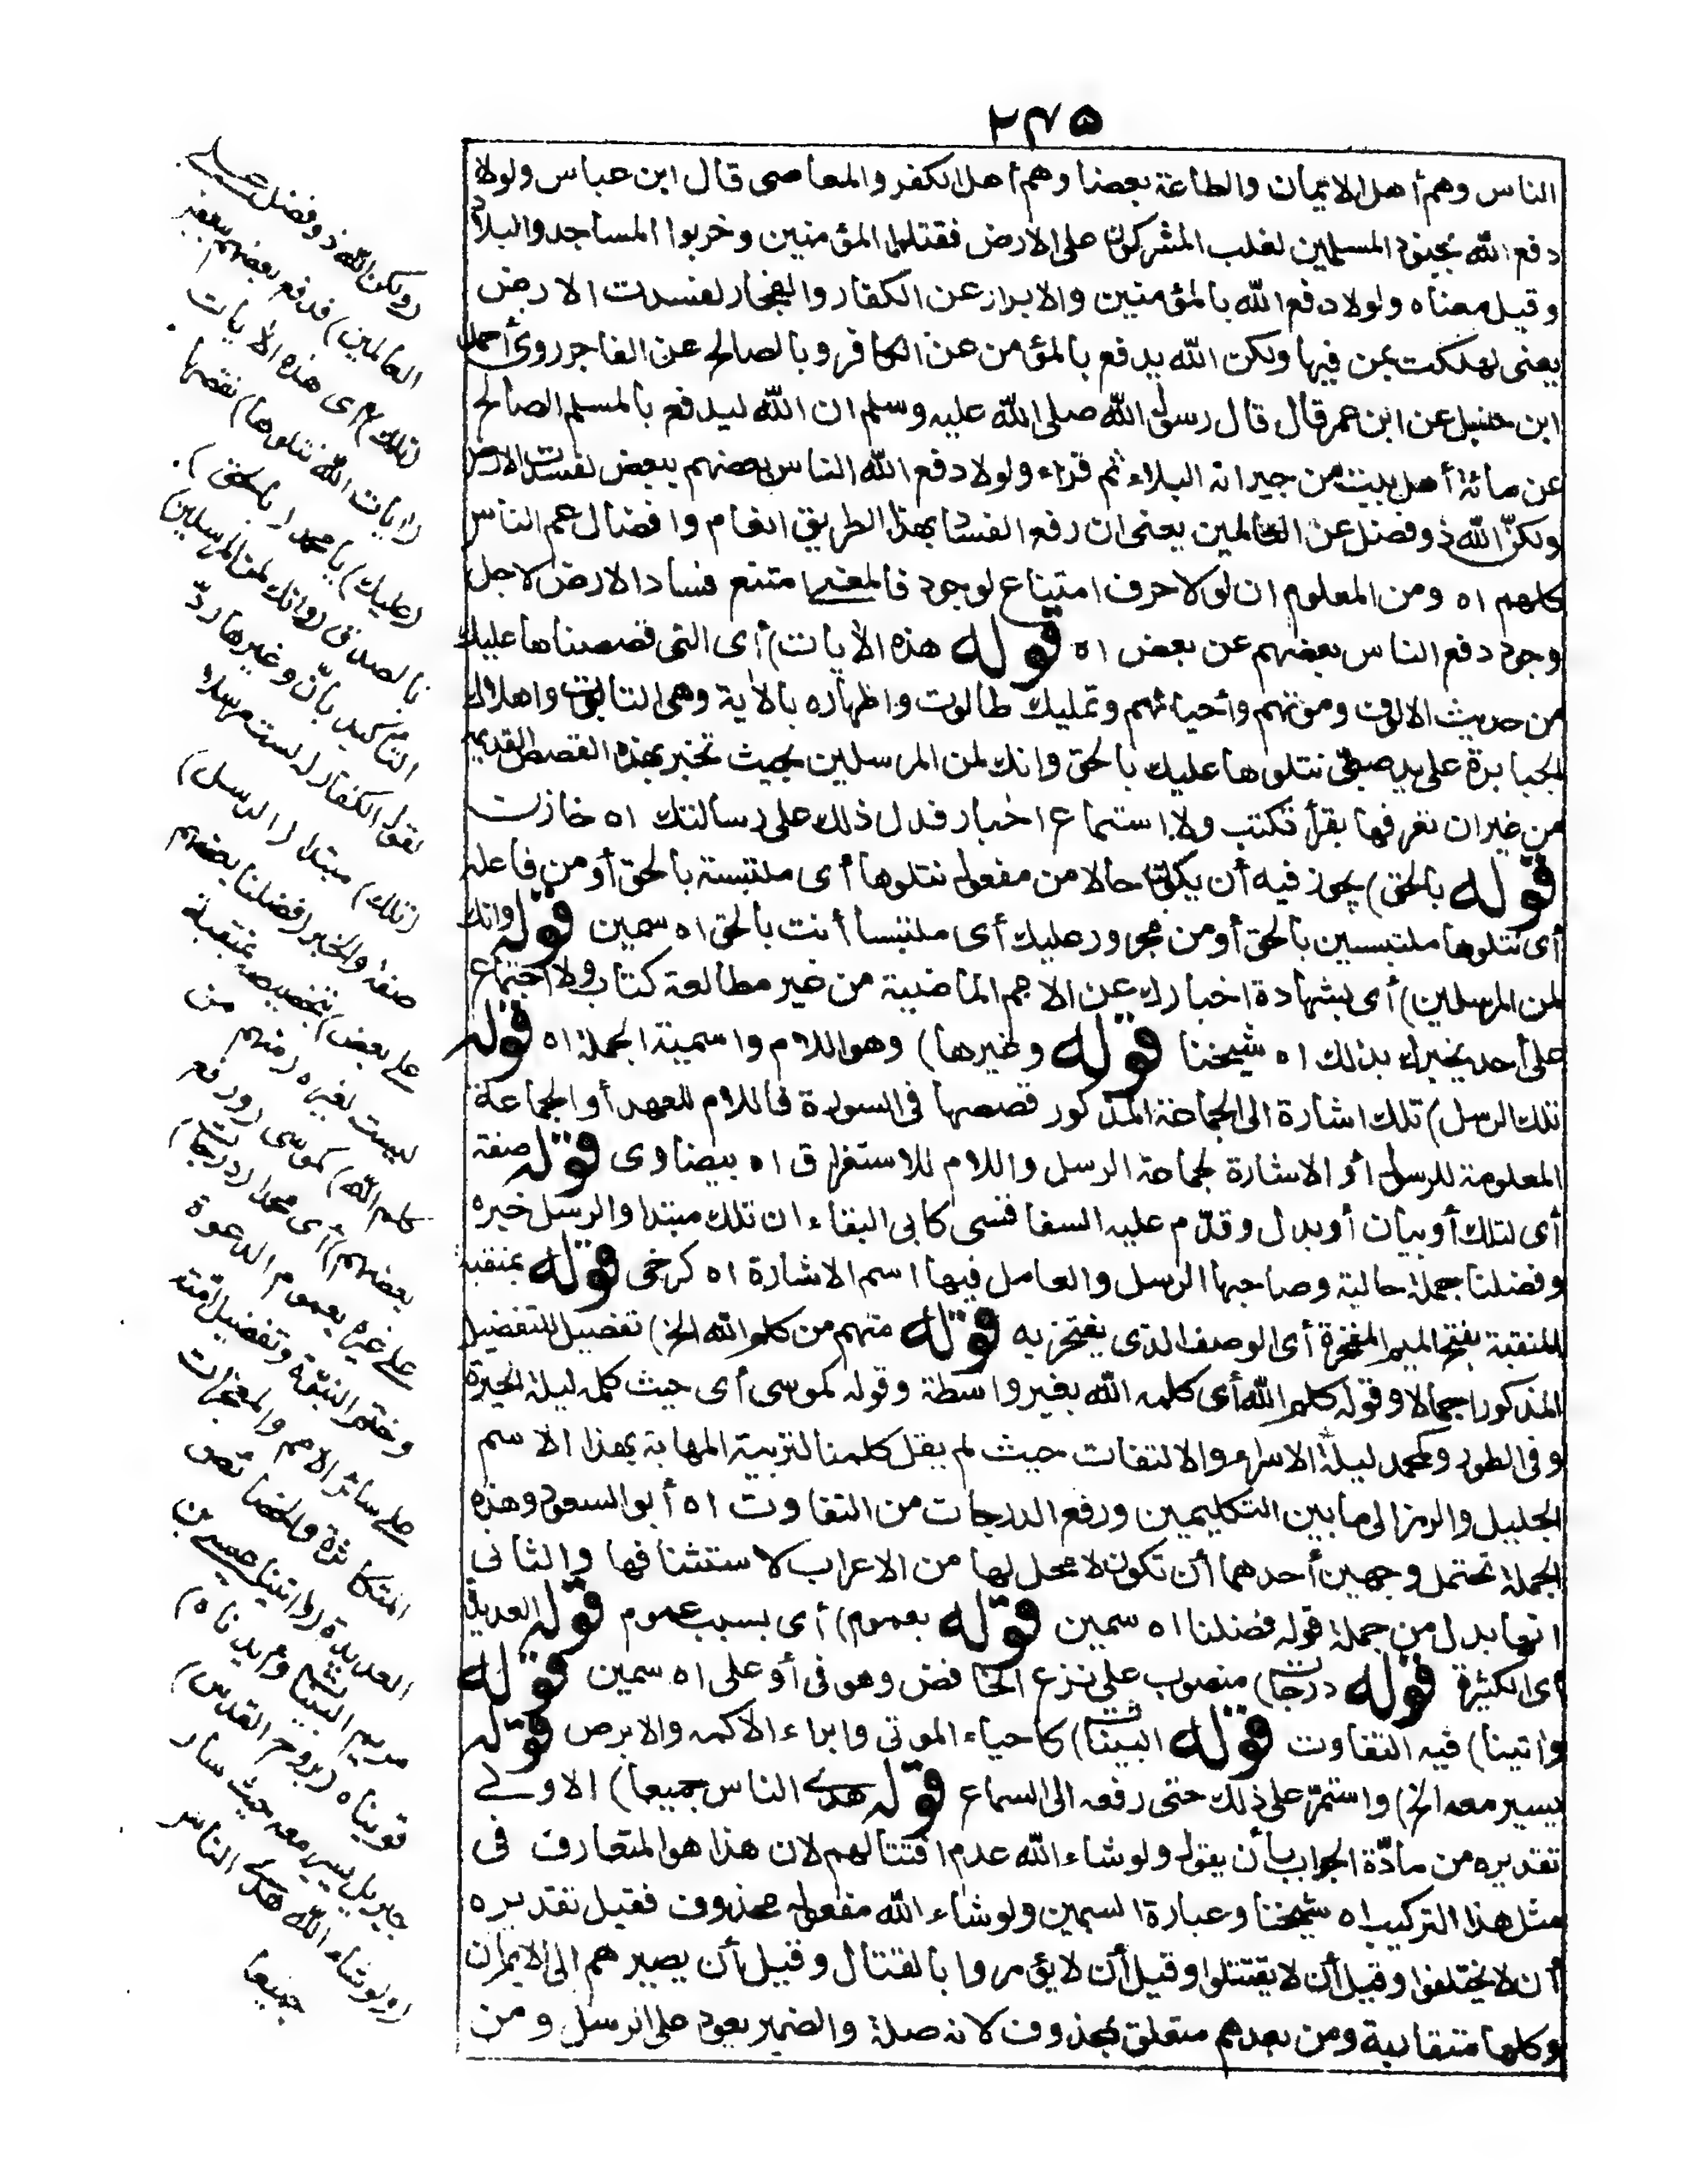 ۲۴۵
الناس وهم أهل الايمان والطاعة بعضا وهم أهل الكفر والمعاصى قال ابن عباس ولولا
دفع الله بجنود المسلمين لغلب المشركون على الارض فقتلوا المؤمنين وخربوا المساجد والبلاد
وقيل معناه ولولا دفع الله بالمؤمنين والابرار عن الكفار والفجار لفسدت الارض
يعنى لهلكت بمن فيها ولكن الله يدفع بالمؤمن عن الكافر وبالصالح عن الفاجر روى أحمد
ابن حنبل عن ابن عمر قال قال رسول الله صلى الله عليه وسلم ان الله ليدفع بالمسلم الصالح
عن مائة أهل بيت من جيرانه البلاء ثم قراء ولولا دفع الله الناس بعضهم ببعض لفسدت الارض
ولكن الله ذو فضل عن العالمين يعنى ان رفع الفساد بهذا الطريق انعام وافضال عم الناس
كلهم اه ومن المعلوم ان لولا حرف امتناع لوجود فالمعنى امتنع فساد الارض لاجل
وجود دفع الناس بعضهم عن بعض اه قوله هذه الآيات) أى التى قصصناها عليك
من حديث الالوف وموتهم وأحيائهم وتمليك طالوت واظهاره بالآية وهى التابوت واهلاك
الجبابرة على يد صبى نتلوها عليك بالحق وانك لمن المرسلين بحيث تخبر بهذه القصص القديمة
من غير ان تعرفها بقرأة كتب ولا استماع اخبار فدل ذلك على رسالتك اه خازن
قوله بالحق) يجوز فيه أن يكون حالا من مفعول نتلوها أى ملتبسة بالحق أو من فاعله
أى نتلوها ملتبسين بالحق أو من مجرور عليك أى ملتبسا أنت بالحق اه سمين قوله وانك
لمن المرسلين) أى بشهادة اخبارك عن الامم الماضية من غير مطالعة كتاب ولا اجتماع
على أحد يخبرك بذلك اه شيخنا قوله وغيرها) وهو اللام واسمية الجملة اه قوله
تلك الرسل) تلك اشارة الى الجماعة المذكور قصصها فى السورة فاللام للعهد أو الجماعة
المعلومة للرسول أو الاشارة لجماعة الرسل واللام للاستغراق اه بيضاوى قوله صفة
أى لتلك أو بيان أو بدل وقدّم عليه السفاقسى كابى البقاء ان تلك مبتدا والرسل خبره
وفضلنا جملة حالية وصاحبها الرسل والعامل فيها اسم الاشارة اه كرخى قوله بمنقبة
المنقبة بفتح الميم المفخرة أى الوصف الذى يفتخر به قوله منهم من كلم الله الخ) تفصيل للتفضيل
المذكور اجمالا وقوله كلم الله أى كلمه الله بغير واسطة وقوله كموسى أى حيث كلمه ليلة الحيرة
وفى الطور ومحمد ليلة الاسراء والالتفات حيث لم يقل كلمنا لتربية المهابة بهذا الاسم
الجليل والرمز الى ما بين التكليمين ورفع الدرجات من التفاوت اه أبو السعود وهذه
الجملة تحتمل وجهين أحدهما أن تكون لا محل لها من الاعراب لاستئنافها والثانى
انها بدل من جملة قوله فضلنا اه سمين قوله بعموم) أى بسبب عموم قوله العديدة
أى الكثيرة قوله درجات) منصوب على نزع الخافض وهو فى أو على اه سمين قوله
واتينا) فيه التفاوت قوله البينات) كاحياء الموتى وابراء الاكمه والابرص قوله
يسير معه الخ) واستمرّ على ذلك حتى رفعه الى السماء قوله هدى الناس جميعا) الاولى
تقديره من مادّة الجواب بأن يقول ولو شاء الله عدم اقتتالهم لان هذا هو المتعارف فى
مثل هذا التركيب اه شيخنا وعبارة السمين ولو شاء الله مفعوله محذوف فقيل تقديره
أن لا يختلفوا وقيل أن لا يقتتلوا وقيل أن لا يؤمروا بالقتال وقيل أن يصيرهم الى الايمان
وكلها متقاربة ومن بعدهم متعلق بمحذوف لانه صلة والضمير يعود على الرسل ومن
(ولكن الله ذو فضل على
العالمين) فدفع بعضهم ببعض
(تلك) أى هذه الآيات
(ايات الله نتلوها) نقصها
(عليك) يا محمد (بالحق)
بالصدق (وانك لمن المرسلين)
التأكيد بانّ وغيرها ردّ
لقول الكفار له لست مرسلا
(تلك) مبتدا (الرسل)
صفة والخبر (فضلنا بعضهم
على بعض) بتخصيصه بمنقبة
ليست لغيره (منهم من
كلم الله) كموسى (ورفع
بعضهم) أى محمدا (درجات)
على غيره بعموم الدعوة
وختم النبوّة وتفضيل امّته
على سائر الامم والمعجزات
المتكاثرة والخصائص
العديدة (واتينا عيسى بن
مريم البينات وأيدناه)
قويناه (بروح القدس)
جبريل يسير معه حيث سار
(ولو شاء الله) هدى الناس
جميعا